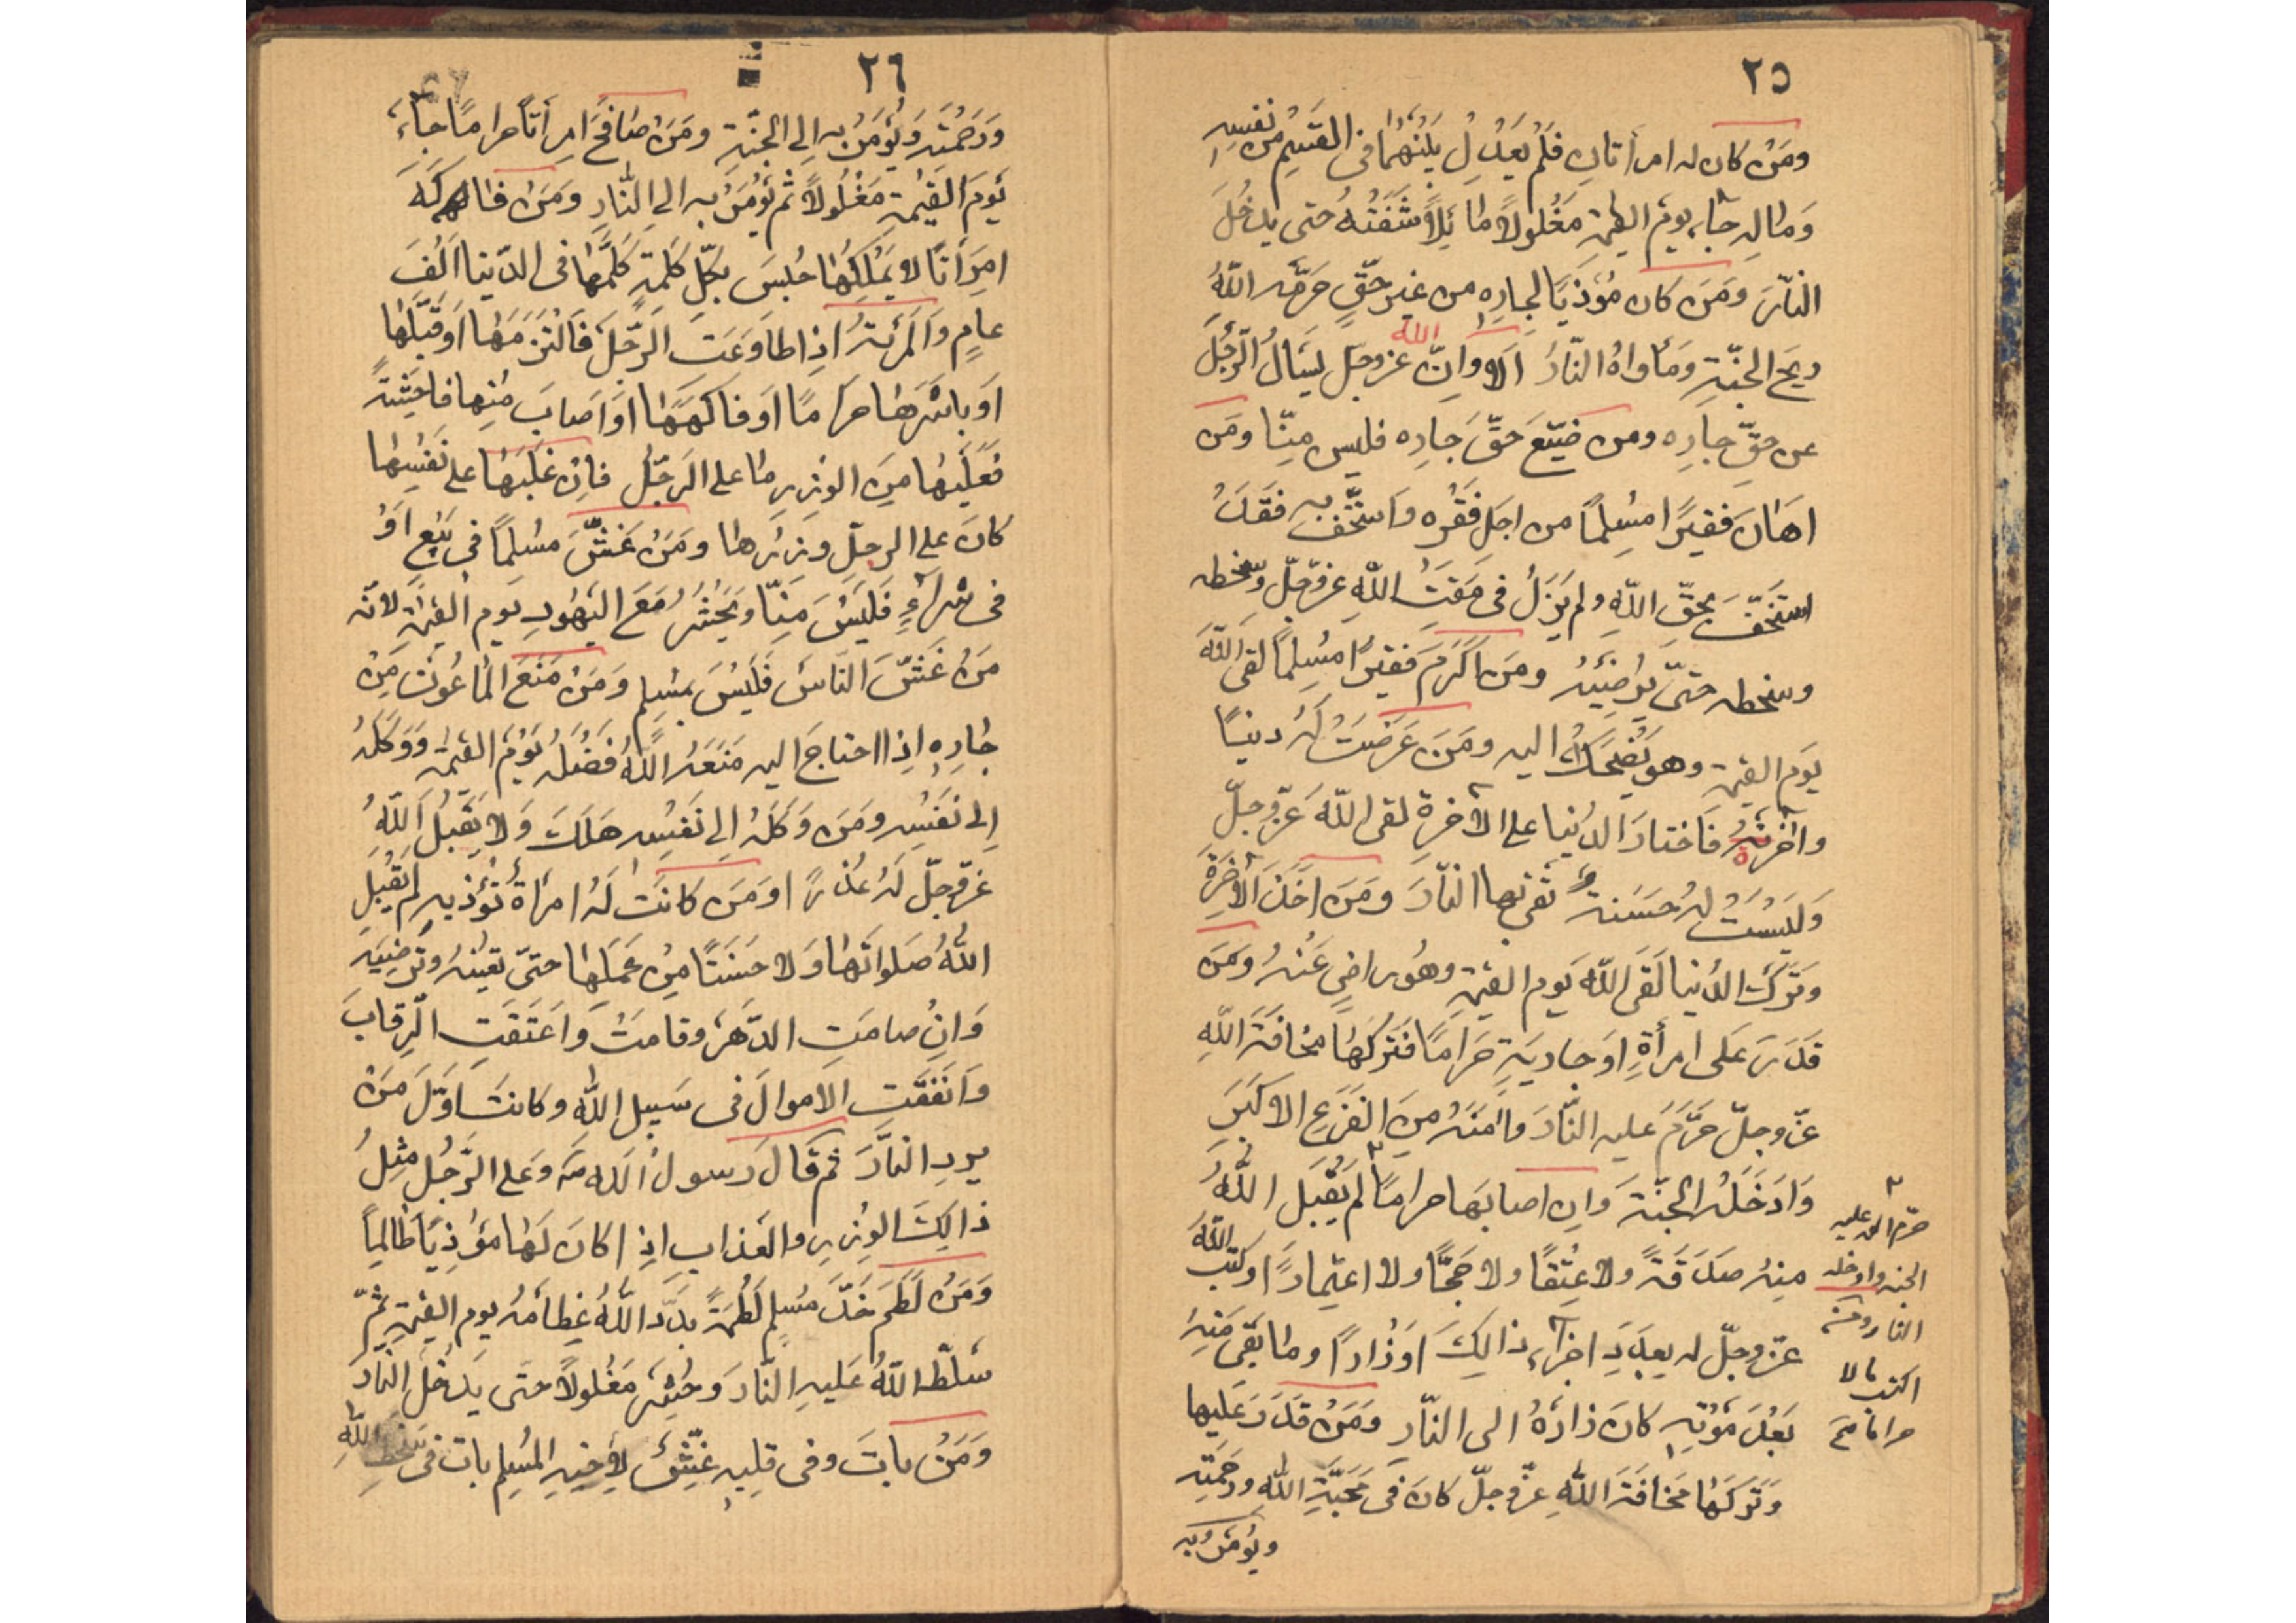 ٢٥
ومَنْ كان له امرأتانِ فَلَمْ يَعْدِلُ بَيْنَهُمَا فى القَسِيْمِ من نفسِهِ
وَمالِهِ جآء يومَ القيٰمةِ مَغْلولاً مائِلاً شَفَتُهُ حتى يدخُلَ
النّارَ ومَنَ كان مُؤذِيًا لجارِهِ من غيرِ حَقٍّ حَرَّمَه اللّٰهُ
ريحَ الجنّةِ ومَأواهُ النّارُ اَلَا وانّ الله عزوجلّ يَسألُ الرّجُلَ
عن حقِّ جارِه ومن ضَيّعَ حَقَّ جَارِه فليس مِنّا ومَن
اهَانَ فَقيرًا مسُلِمًا من اجَلِ فَقْرِه وَاسْتَخَّفَ بِه فقَدْ
استَخَفَّ بحقِّ اللّٰهِ ولم يَزَلْ فى مَقَتِ اللّٰهِ عزّوجلّ وسخطه
وسخطه حتىّ يُرضِيَهُ ومَن اَكَرَمَ فقيرًا مسُلِمًا لقى اللّٰهَ
يَوم القيٰمة وهو يَضْحَكُ اليه ومَن عَرَضَتْ لَهُ دنيًا
وآخرةٌ فَاختارَ الدُنيا على الآخرة لقى اللّٰهَ عَزّوجلّ
وَلَيْسَتْ لهُ حَسَنةٌ تَقى بها النّارَ ومَنَ اخَذَ الآخرَةَ
وتَرَكَ الدُنيا لَقَى اللّٰهَ يَوم القيٰمةِ وهُو راضٍ عَنْهُ ومَن
قدَرَ عَلى امرأةٍ اوَجاريَةٍ حَرامًا فَتَركَهَا مخافَةَ اللّٰهِ
عزّوجلّ حَرَّمَ عليه النّارَ وآمَنَهُ مِنَ الفَزَعِ الاكبَرِ
وَادَخَلَهُ الجنّةَ وَانِ اصابَها حرامًا لم يَقْبَل اللّٰهُ
منِهُ صدَقَةً ولا عِتْقًا ولا حَجًّا ولا اعتِمارًا وكتب اللّٰهُ
عزّوجلّ له بِعِدَدِ اجزآءِ ذالِكَ اوَزْارًا وما بَقَى مَنِهُ
بَعْدَ مَوْتِهِ كانَ زادَهُ الى النّارِ ومَنْ قدَرَ عَلَيها
وَتَركَهَا مَخافَةَ اللّٰهِ عزّوجلّ كانَ فى مَحَبَّةِ اللّٰهِ ورحَمَتِه
ويُؤمَرُ به
حرّم الله عليه
الجنة وادخله
النار
٢٦
وَرَحْمَتِه وَيُؤمَرُ به الى الجنّةِ ومَنْ صافَحَ امرأتًا حرامًا جآءَ
يَومَ القيٰمةِ مَغْلُولاً ثم يُؤمَرُ به الى النّارِ ومَنَ فاكَهَ
امرَأتًا لا يَملِكُهَا حُبسَ بكُلِّ كَلِمةٍ كَلَّمَهَا فى الدّنيا اَلَفَ
عامٍ وَالمَرئةُ اذِا طاَوَعَتِ الَرّجُلَ فَالتَزَمَهَا اوَقَبَّلَهَا
اَو باشَرهَا حرَامًا اوَ فاكَهَهَا اوَاصَابَ مِنها فاحِشةً
فَعَلَيهَا مِنَ الوزِرِ ما على الرَجّلِ فاِنْ غَلَبَهَا على نَفَسِها
كانَ على الرجلِ وزِرُها ومَنْ غَشَّ مسُلِمًا فى بَيْعٍ اوَْ
فى شِرآءٍ فَلَيْسَ مِنّا ويُحْشَرُ مَعَ اليَهُودِ يَوم القيٰمةِ لانّه
مَنْ غَشَّ النّاسَ فَلَيْسَ بمُسلِمٍ وَمَنْ مَنَعَ الماعُونَ مِنْ
جٰارِهِ اذِا احتاجَ اليه مَنَعَهُ اللّٰهُ فَضْلَهُ يَوْمَ القيٰمة وَوَكَلَهُ
اِلى نَفَسِه ومَن وَكَلَهُ الى نَفْسِه هَلَكَ وَلا يَقْبَلُ اللّٰهُ
عزّوجلّ لَهُ عُذْرًا ومَن كانَتْ لَهُ امرَأةٌ تُؤذيهِ لم يَقْبَلِ
اللّٰهُ صَلوَاتَهَا وَلا حسَنَتًا مِنْ عَمَلِهَا حتىّ تعُينَهُ وَتُرضِيَه
وَانِْ صامَتِ الدّهَرَ وقامَتْ وَاعَتَقَتِ الّرِقابَ
وَانَفَقَتِ الاموالَ فى سَبيلِ اللّٰه وكانتَ اوَّلَ مَنْ
يرِدِ النّارَ ثم قَالَ رَسولُ اللّٰه ص وَعَلى الرَّجُلِ مِثلُ
ذالِكَ الوِزِرِ والعَذابِ اذِا كانَ لَهَا مُؤذِيًا ظالِمًا
وَمَنْ لَطَمَ خَدَّ مُسلِمٍ لَطْمَةً بدَّدَ اللّٰهُ عِظامَهُ يوم القيٰمةِ ثمّ
سَلَّطَ اللّٰهُ عَلَيهِ النّارَ وَحُشِرَ مَغْلولاً حتَى يَدْخُلَ النّارَ
وَمَنْ باتَ وفى قلبِه غِشٌّ لِأخيهِ المُسلِمِ باتَ فى سَخَطِ اللّٰهِ